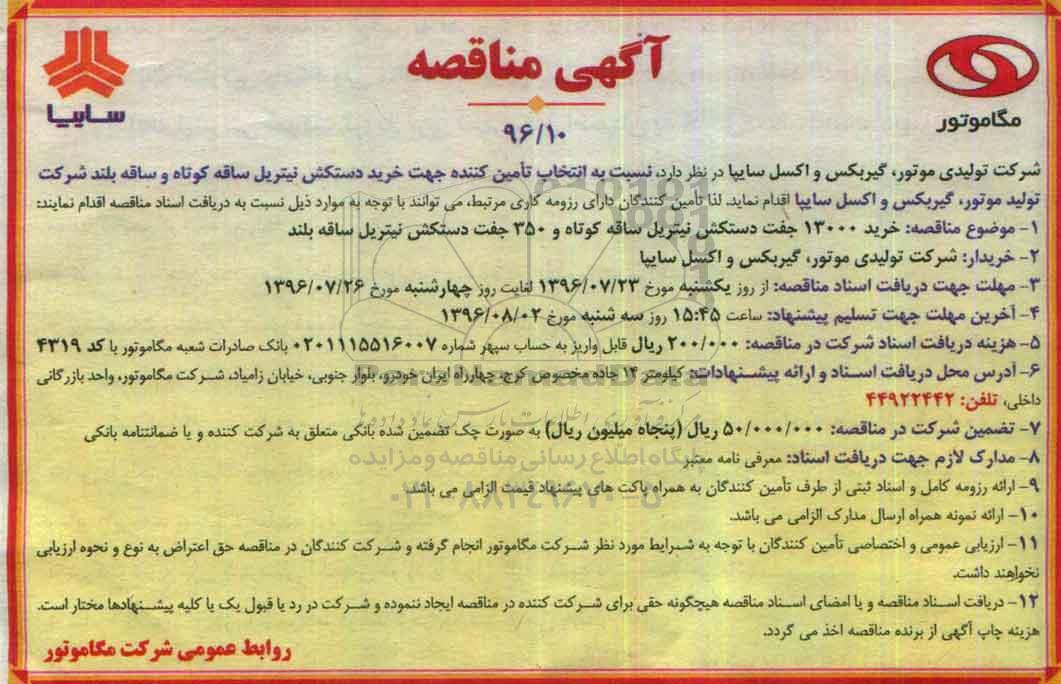 آگهی مناقصه
۹۶/۱۰
سایپا
مگاموتور
شرکت تولیدی موتور، گیربکس و اکسل سایپا در نظر دارد، نسبت به انتخاب تأمین کننده جهت خرید دستکش نیتریل ساقه کوتاه و ساقه بلند شرکت
تولید موتور، گیربکس و اکسل سایپا اقدام نماید. لذا تأمین کنندگان دارای رزومه کاری مرتبط، می توانند با توجه به موارد ذیل نسبت به دریافت اسناد مناقصه اقدام نمایند:
۱- موضوع مناقصه: خرید ۱۳۰۰۰ جفت دستکش نیتریل ساقه کوتاه و ۳۵۰ جفت دستکش نیتریل ساقه بلند
۲- خریدار: شرکت تولیدی موتور، گیربکس و اکسل سایپا
۳- مهلت جهت دریافت اسناد مناقصه: از روز یکشنبه مورخ ۱۳۹۶/۰۷/۲۳ لغایت روز چهارشنبه مورخ ۱۳۹۶/۰۷/۲۶
۴- آخرین مهلت جهت تسلیم پیشنهاد: ساعت ۱۵:۴۵ روز سه شنبه مورخ ۱۳۹۶/۰۸/۰۲
۵- هزینه دریافت اسناد شرکت در مناقصه: ۲۰۰/۰۰۰ ریال قابل واریز به حساب سپهر شماره ۰۲۰۱۱۱۵۵۱۶۰۰۷ بانک صادرات شعبه مگاموتور با کد ۴۳۱۹
۶- آدرس محل دریافت اسناد و ارائه پیشنهادات: کیلومتر ۱۴ جاده مخصوص کرج، چهارراه ایران خودرو، بلوار جنوبی، خیابان زامیاد، شرکت مگاموتور، واحد بازرگانی
داخلی، تلفن: ۴۴۹۲۲۴۴۲
۷- تضمین شرکت در مناقصه: ۵۰/۰۰۰/۰۰۰ ریال (پنجاه میلیون ریال) به صورت چک تضمین شده بانکی متعلق به شرکت کننده و یا ضمانتنامه بانکی
۸- مدارک لازم جهت دریافت اسناد: معرفی نامه معتبر
۹- ارائه رزومه کامل و اسناد ثبتی از طرف تأمین کنندگان به همراه پاکت های پیشنهاد قیمت الزامی می باشد.
۱۰- ارائه نمونه همراه ارسال مدارک الزامی می باشد.
۱۱- ارزیابی عمومی و اختصاصی تأمین کنندگان با توجه به شرایط مورد نظر شرکت مگاموتور انجام گرفته و شرکت کنندگان در مناقصه حق اعتراض به نوع و نحوه ارزیابی
نخواهند داشت.
۱۲- دریافت اسناد مناقصه و یا امضای اسناد مناقصه هیچگونه حقی برای شرکت کننده در مناقصه ایجاد ننموده و شرکت در رد یا قبول یک یا کلیه پیشنهادها مختار است.
هزینه چاپ آگهی از برنده مناقصه اخذ می گردد.
روابط عمومی شرکت مگاموتور
پایگاه اطلاع رسانی مناقصه و مزایده